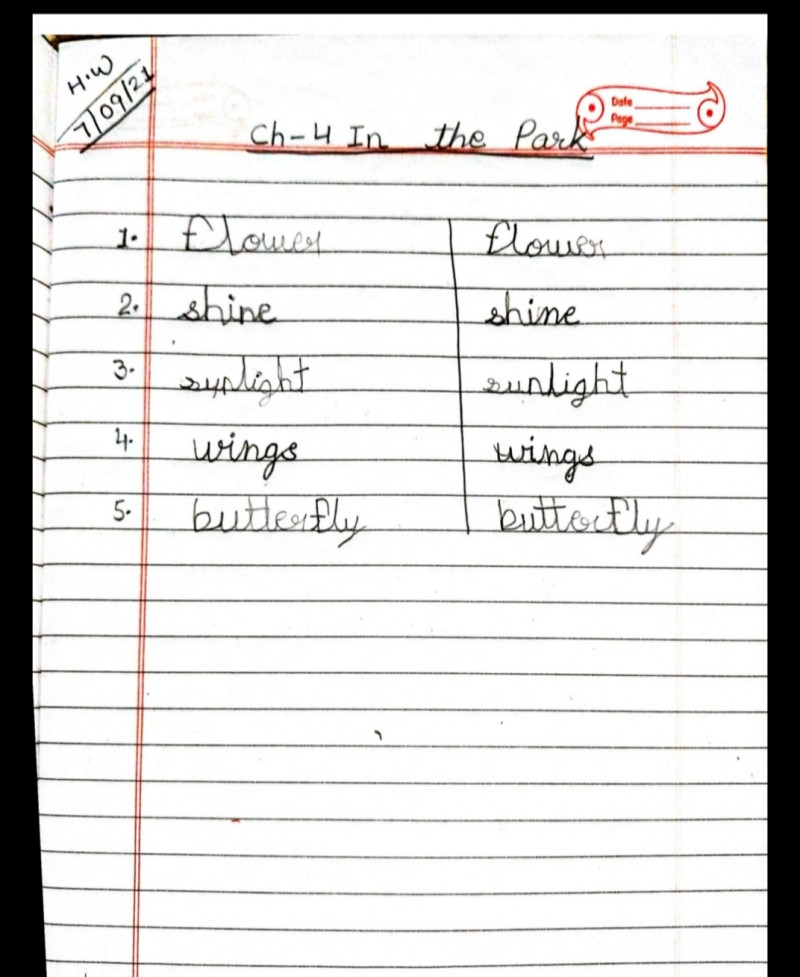 H.W
7/09/21
Date
Page
Ch-4 In the Park
1. flower flower
2. shine shine
3. sunlight sunlight
4. wings wings
5. butterfly butterfly